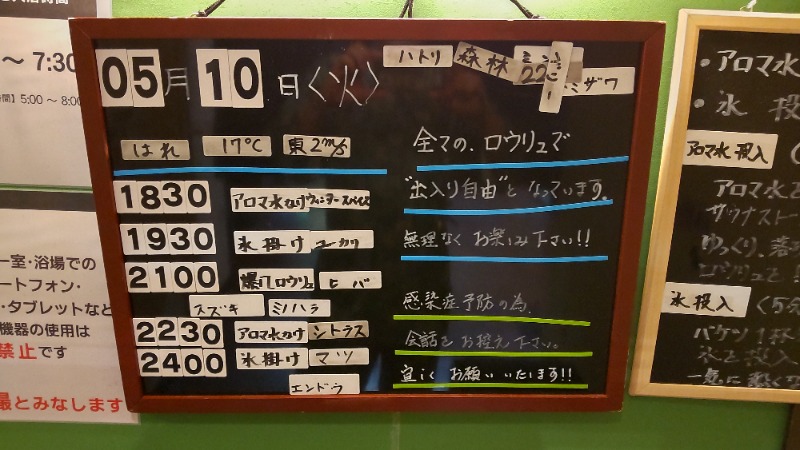 〜 7:30
5:00 〜 8:00
05月10日〈火〉
ハトリ 森林
22℃
ミザワ
はれ 17℃ 東2m/s
1830 アロマ水かけ ウィンタースパイス
1930 氷掛け ユーカリ
2100 爆風ロウリュ ヒバ
スズキ ミノハラ
2230 アロマ水かけ シトラス
2400 氷掛け マツ
エンドウ
全ての、ロウリュで
"出入り自由"と なっています。
無理なく お楽しみ下さい!!
感染症予防の為、
会話を お控え 下さい。
宜しく お願い いたします!!
室・浴場での
ートフォン・
・タブレットなど
機器の使用は
禁止です
最とみなします
・アロマ水
・氷 投
アロマ水投入
アロマ水
サウナストー
ゆっくり、
ロウリュ
氷投入
バケツ1杯
氷を投入
一気に